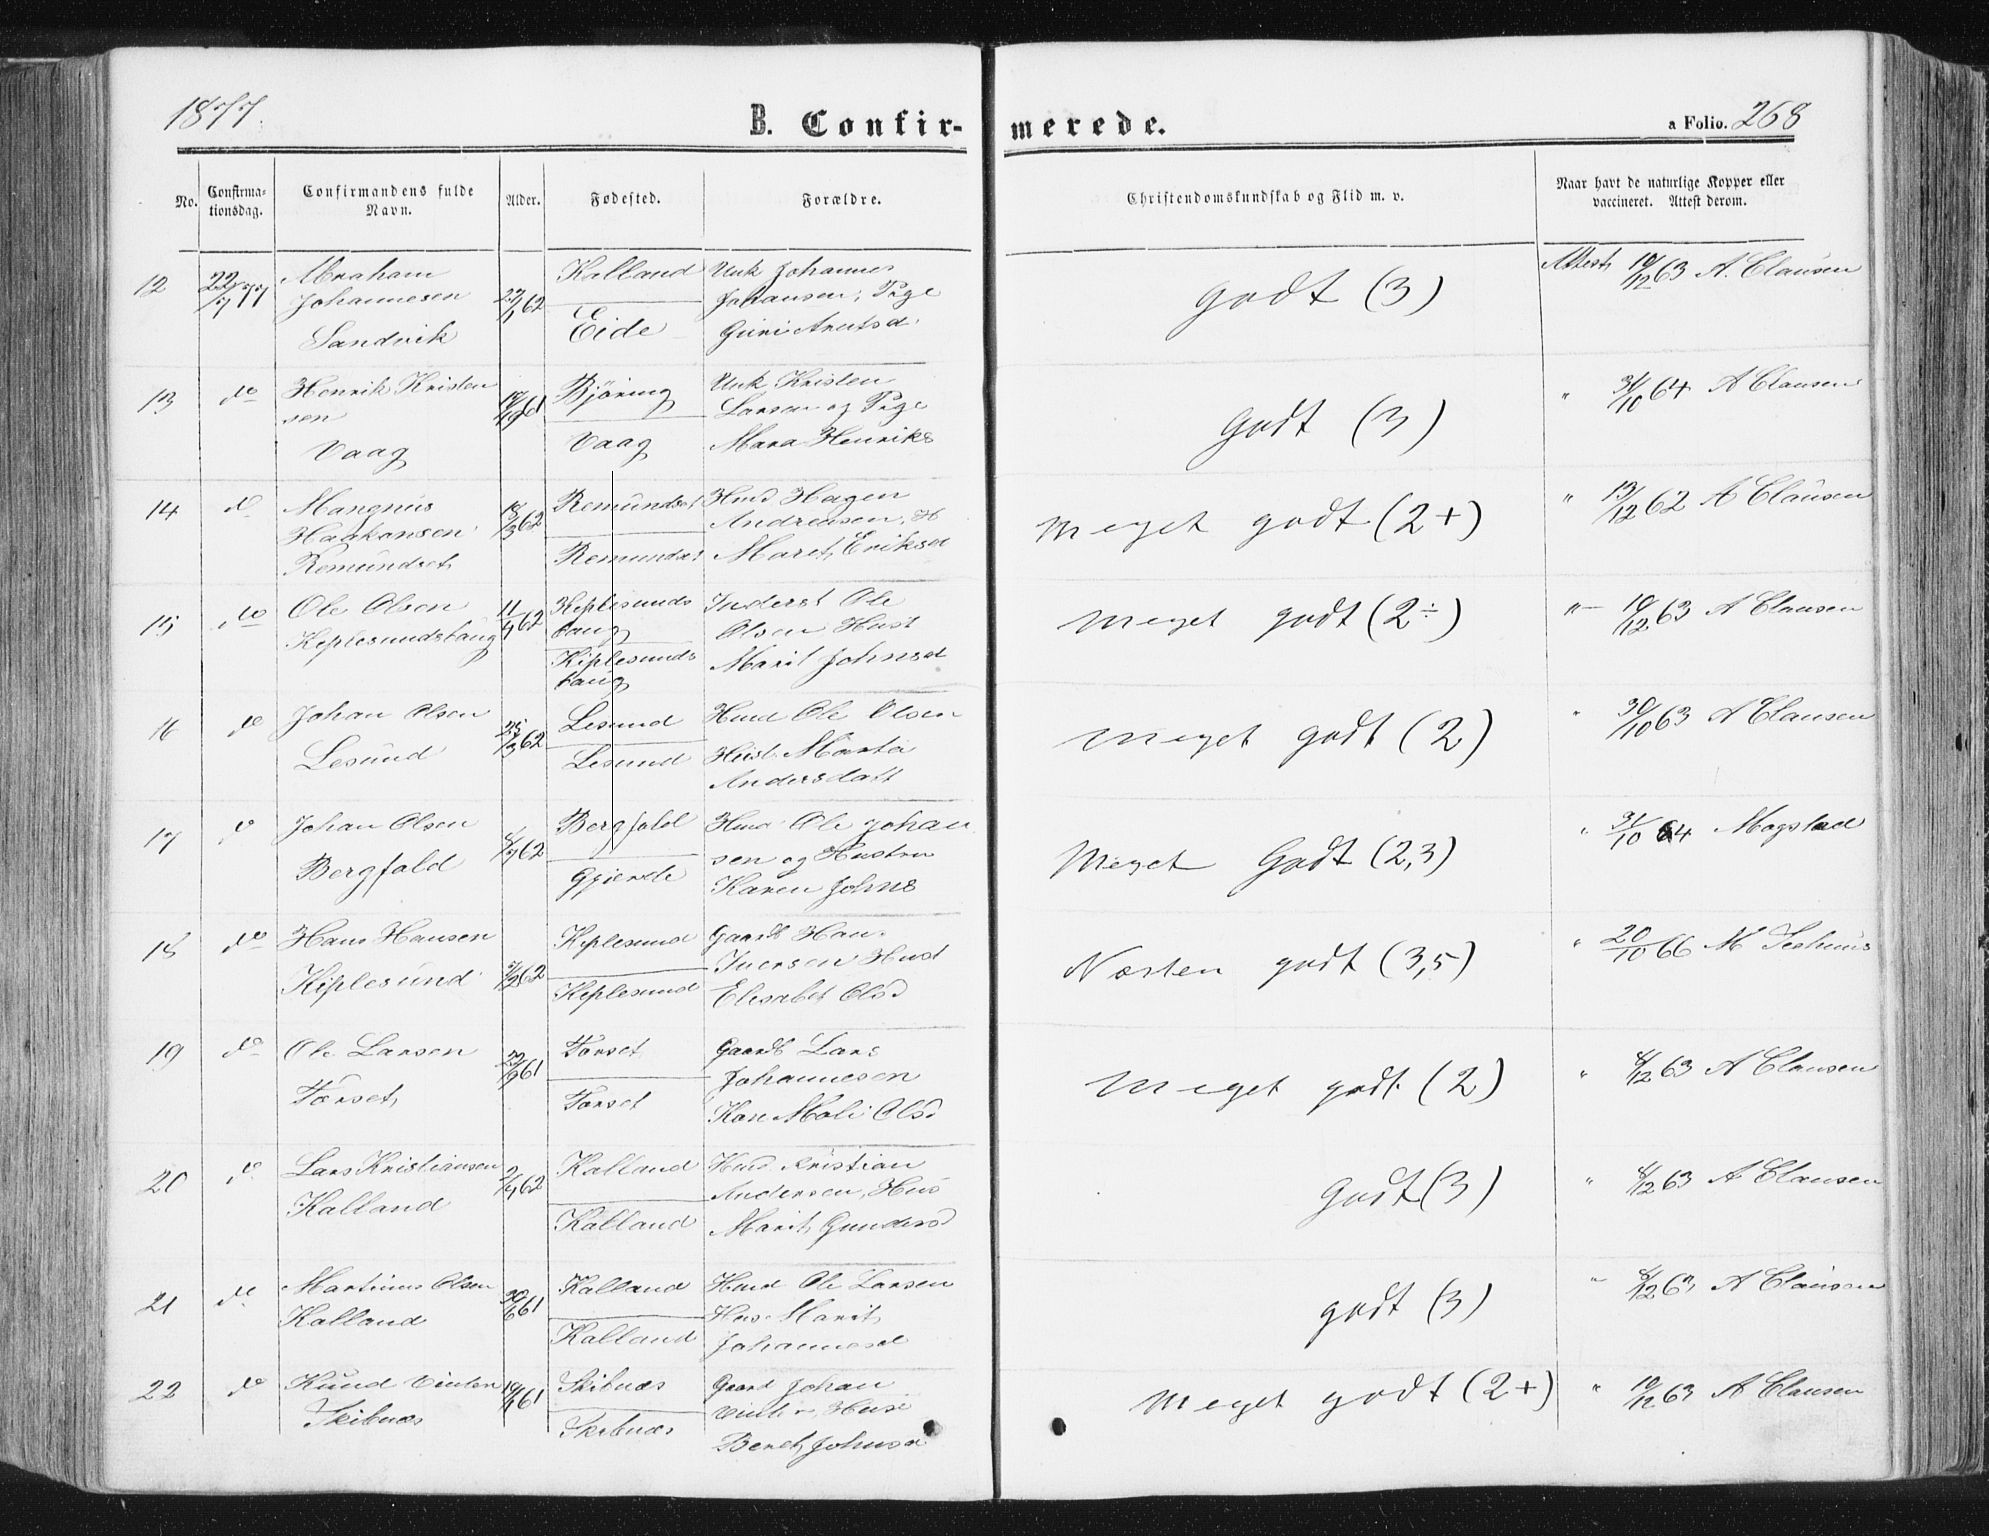 1877.
B. Confir-
merede.
a Folio. 268
No.
Confirma-
tionsdag.
Confirmandens fulde
Navn.
Alder.
Fødested.
Forældre.
Christendomskundskab og Flid m. v.
Naar havt de naturlige Kopper eller
vaccineret. Attest derom.
12 22/7 77 Abraham
Johannesen
Sandvik
Kalland
Eide
Unk Johannes
Johansen, Pige
Guri
Godt (3)
Attest 19/12 63 A. Clausen
13 do Henrik Kristen
sen
Vaag
Björing
Vaag
Unk Kristen
Larsen og Pige
Mara Henriks
Godt (3)
" 31/10 64 A Clausen
14 do Mangnus
Haakonsen
Remundset
18/3 62
Remundset
Remundset
Hmd Hagen
Andreasen, H
Maret Eriksd
Meget godt (2+)
" 13/12 62 A Clausen
15 do Ole Olsen
Keplesundstaug
11/4 62
Keplesunds
taug
Kiplesunds
taug
Inderst Ole
Olsen Hust
Marit Johnsd
Meget godt (2÷)
" 19/12 63 A Clausen
16 do Johan Olsen
Lesund
25/3 62
Lesund
Lesund
Hmd Ole Olsen
Hust. Marta
Andersdatt
Meget godt (2)
" 30/10 63 A Clausen
17 do Johan Olsen
Bergfald
Bergfald
Gjerde
Hmd Ole Johan
sen og Hustru
Karen Johns
Meget Godt (2,3)
" 31/10 64 Mogstad
18 do Hans Hansen
Kiplesund
Keplesund
Keplesund
Gaardb Hans
Iversen Hust
Elisabet Olsd
Næsten godt (3,5)
" 20/10 66 M
19 do Ole Larsen
Torset
29/9 61
Torset
Torset
Gaardb Lars
Johannesen
Kon Mali Olsd
Meget godt (2)
" 4/12 63 A Clausen
20 do Lars Kristiansen
Kalland
2/4 62
Kalland
Kalland
Hmd Kristian
Andersen, Hus
Marit Gundersd
Godt (3)
" 4/12 63 A Clausen
21 do Martinus Olsen
Kalland
30/6 61
Kalland
Kalland
Hmd Ole Larsen
Hus. Marit
Johannesd
godt (3)
" 8/12 63 A Clausen
22 do Knud
Skibnæs
Skibnæs
Skibnæs
Gaard Johan
Beret Johnsd
Meget godt (2+)
" 19/12 63 A Clausen